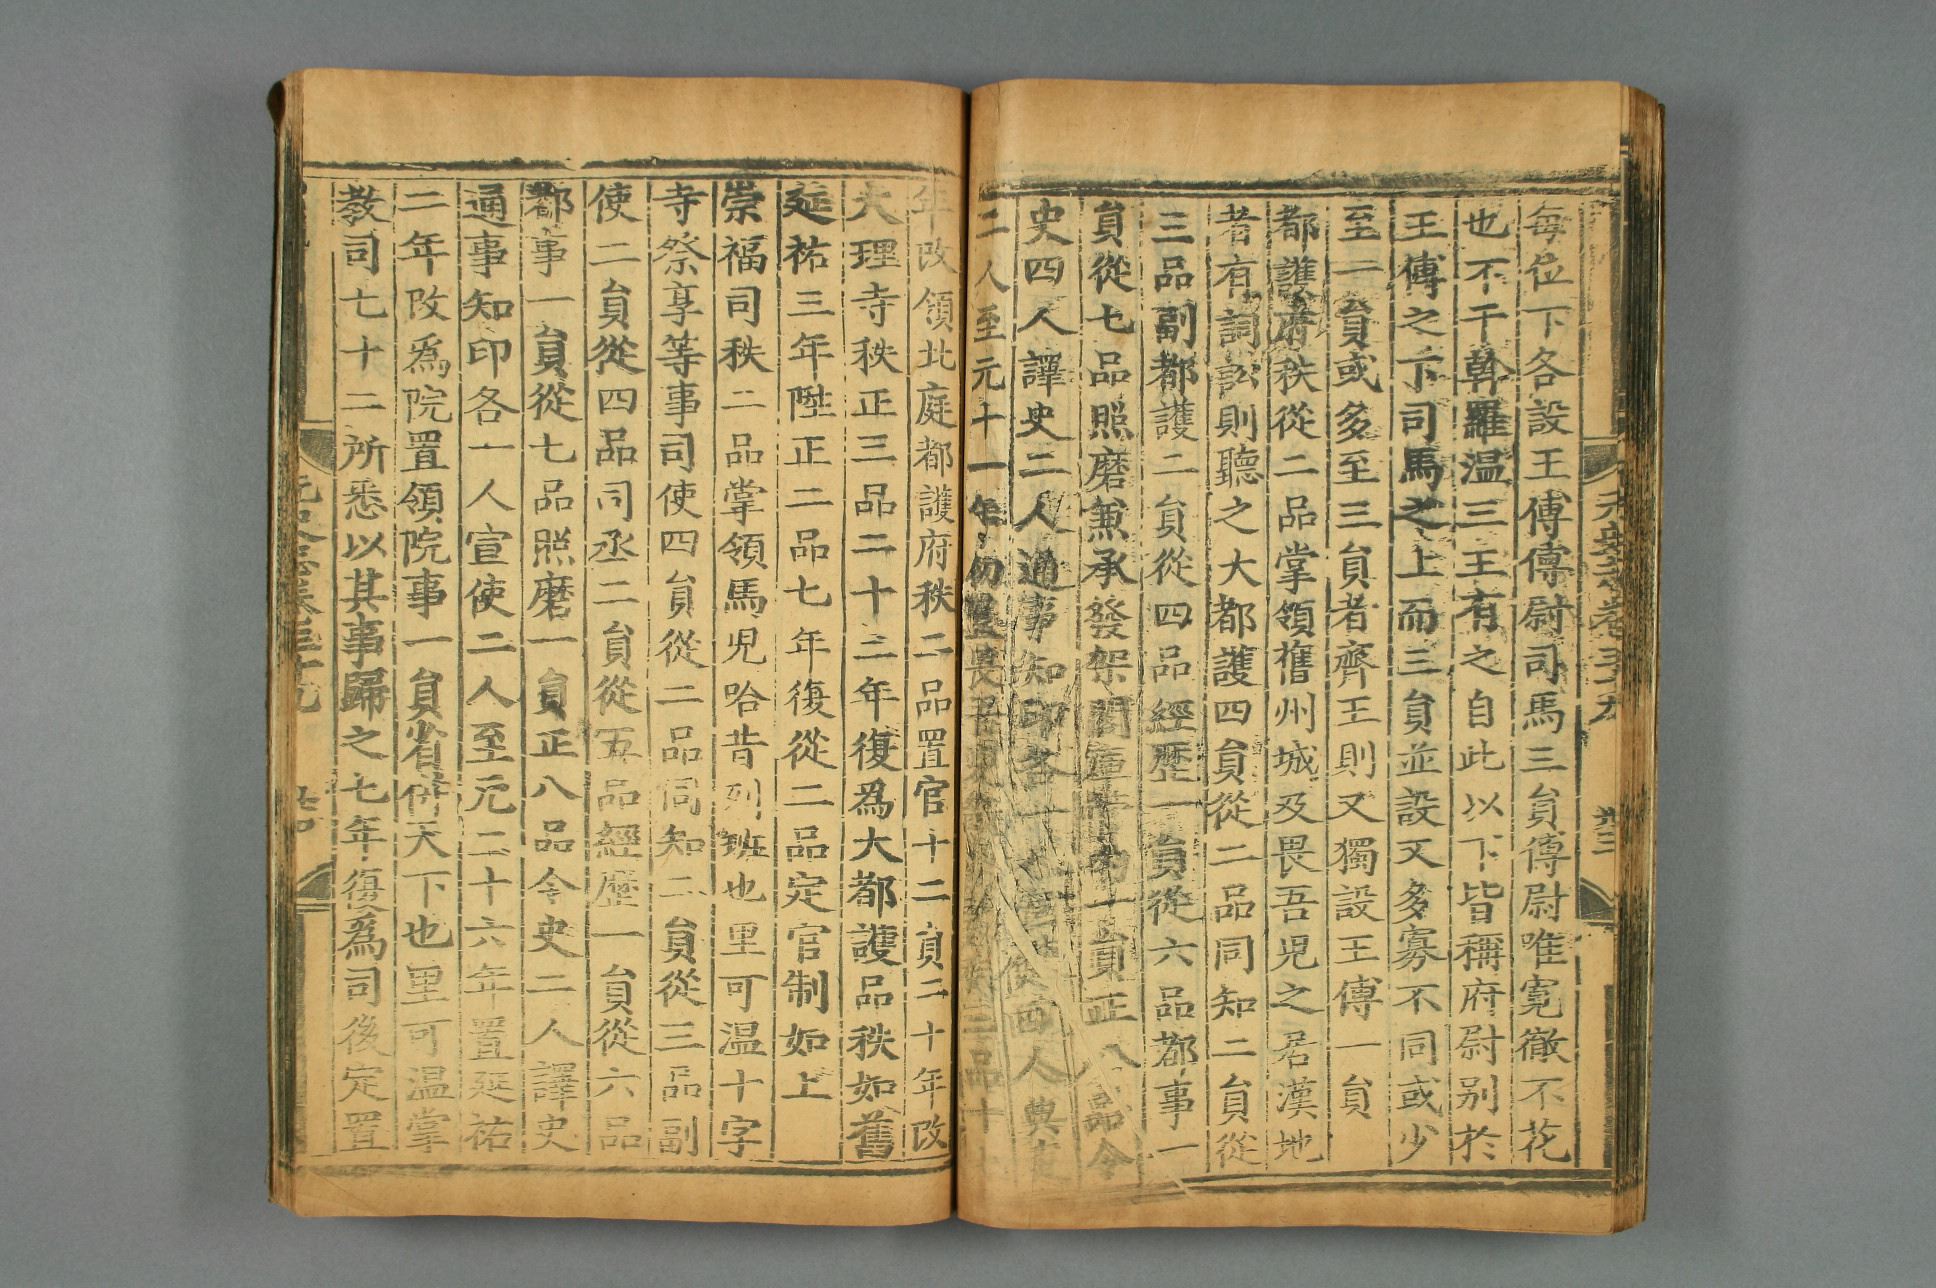 每位下各設王傅傅尉司馬三負傅尉唯寛徹不花
也不干斡羅温三王有之自此以下皆稱府尉别於
王傅之下司馬之上而三負並設又多寡不同或少
至一負或多至三負者齊王則又獨設王傅一負
都護府秩從二品掌領舊州城及畏吾児之居漢地
者有詞訟則聽之大都護四負從二品同知二負從
三品副都護二負從四品經歷一負從六品都事一
負從七品照磨兼承發架閣庫管勾一負正八品令
史四人譯史二人通事知印各一人宣使四人典吏
二人至元十一年初置畏吾 三品十
年改領北庭都護府秩二品置官十二負二十年改
大理寺秩正三品二十二年復爲大都護品秩如舊
延祐三年陞正二品七年復從二品定官制如上
崇福司秩二品掌領馬児哈昔列班也里可温十字
寺祭享等事司使四負從二品同知二負從三品副
使二負從四品司丞二負從五品經歷一負從六品
都事一負從七品照磨一負正八品令史二人譯史
通事知印各一人宣使二人至元二十六年置延祐
二年改爲院置領院事一負省併天下也里可温掌
教司七十二所悉以其事歸之七年復爲司後定置
元史志卷三十九